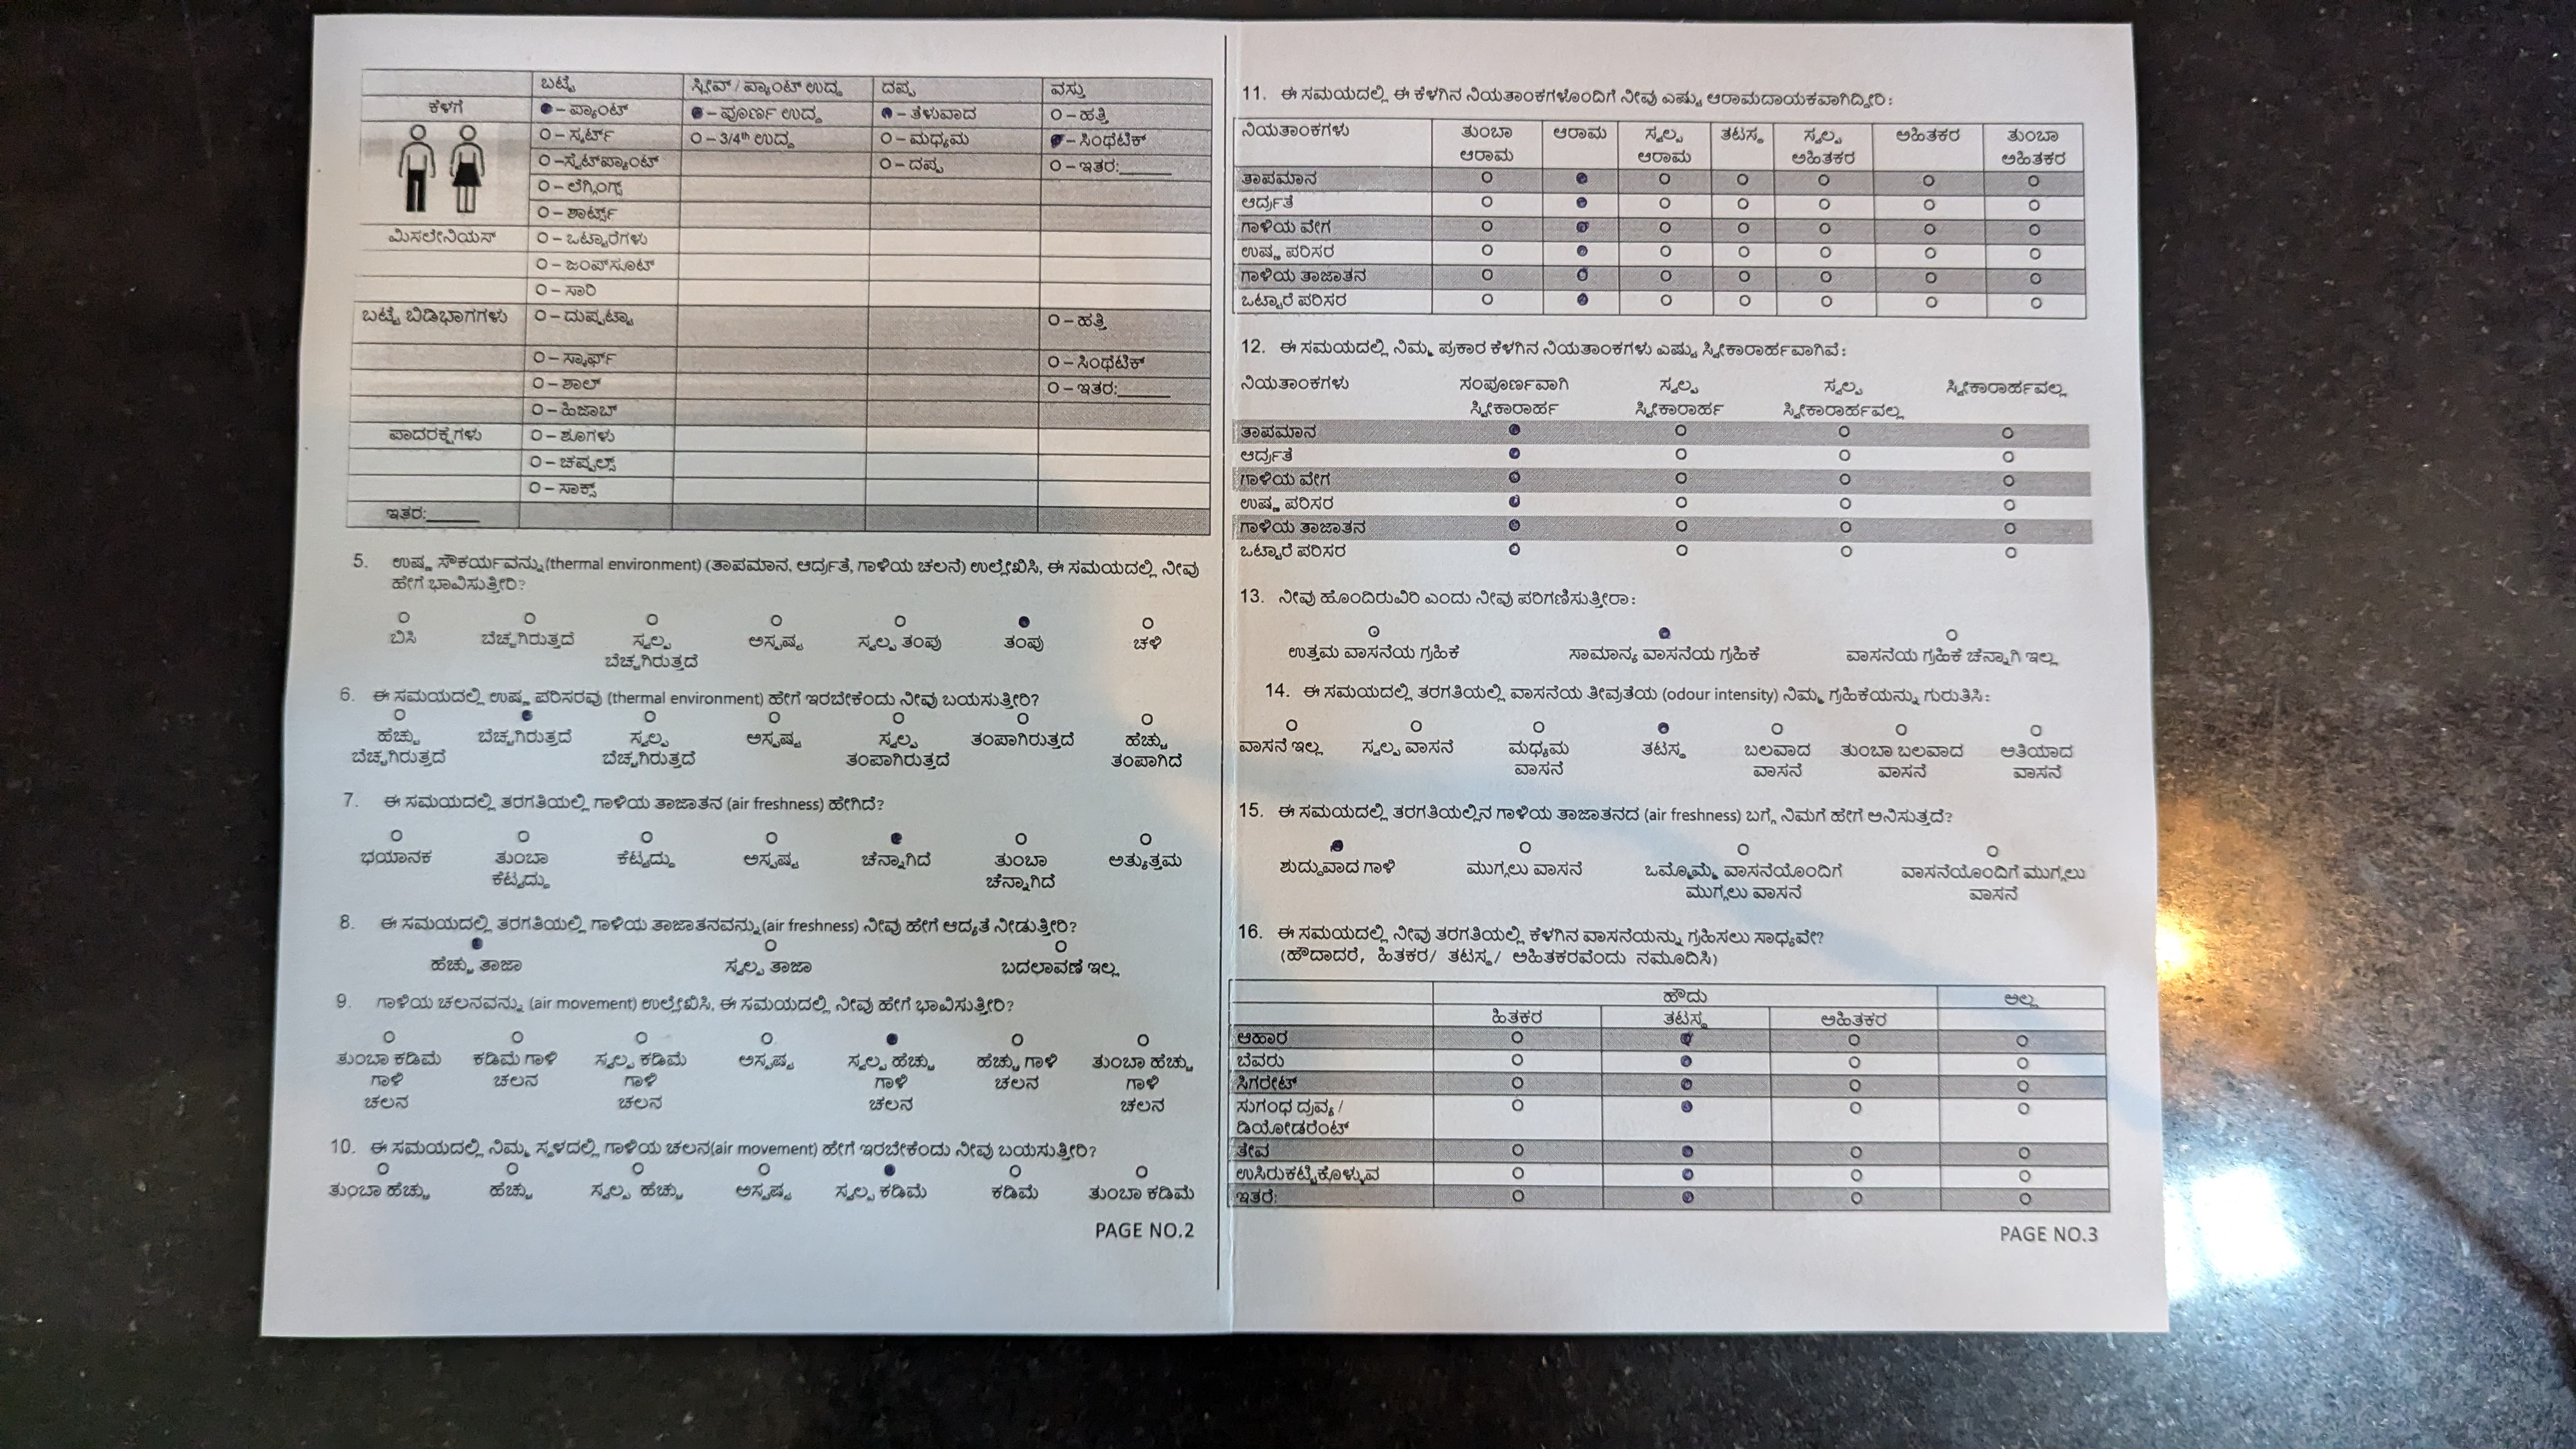 ಬಟ್ಟೆ ಸ್ಲೀವ್ / ಪ್ಯಾಂಟ್ ಉದ್ದ ದಪ್ಪ ವಸ್ತು
ಕೆಳಗೆ O – ಪ್ಯಾಂಟ್ O – ಪೂರ್ಣ ಉದ್ದ O – ತೆಳುವಾದ O – ಹತ್ತಿ
O – ಸ್ಕರ್ಟ್ O – 3/4th ಉದ್ದ O – ಮಧ್ಯಮ O – ಸಿಂಥೆಟಿಕ್
O –ಸ್ವೆಟ್‌ಪ್ಯಾಂಟ್ O – ದಪ್ಪ O – ಇತರ:______
O – ಲೆಗ್ಗಿಂಗ್ಸ್
O – ಶಾರ್ಟ್ಸ್
ಮಿಸಲೇನಿಯಸ್ O – ಒಟ್ಟಾರೆಗಳು
O – ಜಂಪ್‌ಸೂಟ್
O – ಸಾರಿ
ಬಟ್ಟೆ ಬಿಡಿಭಾಗಗಳು O – ದುಪ್ಪಟ್ಟಾ O – ಹತ್ತಿ
O – ಸ್ಕಾರ್ಫ್ O – ಸಿಂಥೆಟಿಕ್
O – ಶಾಲ್ O – ಇತರ:______
O – ಹಿಜಾಬ್
ಪಾದರಕ್ಷೆಗಳು O – ಶೂಗಳು
O – ಚಪ್ಪಲ್ಸ್
O – ಸಾಕ್ಸ್
ಇತರ:______
5. ಉಷ್ಣ ಸೌಕರ್ಯವನ್ನು (thermal environment) (ತಾಪಮಾನ, ಆರ್ದ್ರತೆ, ಗಾಳಿಯ ಚಲನೆ) ಉಲ್ಲೇಖಿಸಿ, ಈ ಸಮಯದಲ್ಲಿ ನೀವು
ಹೇಗೆ ಭಾವಿಸುತ್ತೀರಿ?
ಬಿಸಿ ಬೆಚ್ಚಗಿರುತ್ತದೆ ಸ್ವಲ್ಪ ಅಸ್ಪಷ್ಟ ಸ್ವಲ್ಪ ತಂಪು ತಂಪು ಚಳಿ
ಬೆಚ್ಚಗಿರುತ್ತದೆ
6. ಈ ಸಮಯದಲ್ಲಿ ಉಷ್ಣ ಪರಿಸರವು (thermal environment) ಹೇಗೆ ಇರಬೇಕೆಂದು ನೀವು ಬಯಸುತ್ತೀರಿ?
ಹೆಚ್ಚು ಬೆಚ್ಚಗಿರುತ್ತದೆ ಸ್ವಲ್ಪ ಅಸ್ಪಷ್ಟ ಸ್ವಲ್ಪ ತಂಪಾಗಿರುತ್ತದೆ ಹೆಚ್ಚು
ಬೆಚ್ಚಗಿರುತ್ತದೆ ಬೆಚ್ಚಗಿರುತ್ತದೆ ತಂಪಾಗಿರುತ್ತದೆ ತಂಪಾಗಿದೆ
7. ಈ ಸಮಯದಲ್ಲಿ ತರಗತಿಯಲ್ಲಿ ಗಾಳಿಯ ತಾಜಾತನ (air freshness) ಹೇಗಿದೆ?
ಭಯಾನಕ ತುಂಬಾ ಕೆಟ್ಟದ್ದು ಅಸ್ಪಷ್ಟ ಚೆನ್ನಾಗಿದೆ ತುಂಬಾ ಅತ್ಯುತ್ತಮ
ಕೆಟ್ಟದ್ದು ಚೆನ್ನಾಗಿದೆ
8. ಈ ಸಮಯದಲ್ಲಿ ತರಗತಿಯಲ್ಲಿ ಗಾಳಿಯ ತಾಜಾತನವನ್ನು (air freshness) ನೀವು ಹೇಗೆ ಆದ್ಯತೆ ನೀಡುತ್ತೀರಿ?
ಹೆಚ್ಚು ತಾಜಾ ಸ್ವಲ್ಪ ತಾಜಾ ಬದಲಾವಣೆ ಇಲ್ಲ
9. ಗಾಳಿಯ ಚಲನವನ್ನು (air movement) ಉಲ್ಲೇಖಿಸಿ, ಈ ಸಮಯದಲ್ಲಿ ನೀವು ಹೇಗೆ ಭಾವಿಸುತ್ತೀರಿ?
ತುಂಬಾ ಕಡಿಮೆ ಕಡಿಮೆ ಗಾಳಿ ಸ್ವಲ್ಪ ಕಡಿಮೆ ಅಸ್ಪಷ್ಟ ಸ್ವಲ್ಪ ಹೆಚ್ಚು ಹೆಚ್ಚು ಗಾಳಿ ತುಂಬಾ ಹೆಚ್ಚು
ಗಾಳಿ ಚಲನ ಗಾಳಿ ಗಾಳಿ ಚಲನ ಗಾಳಿ
ಚಲನ ಚಲನ ಚಲನ ಚಲನ
10. ಈ ಸಮಯದಲ್ಲಿ ನಿಮ್ಮ ಸ್ಥಳದಲ್ಲಿ ಗಾಳಿಯ ಚಲನ(air movement) ಹೇಗೆ ಇರಬೇಕೆಂದು ನೀವು ಬಯಸುತ್ತೀರಿ?
ತುಂಬಾ ಹೆಚ್ಚು ಹೆಚ್ಚು ಸ್ವಲ್ಪ ಹೆಚ್ಚು ಅಸ್ಪಷ್ಟ ಸ್ವಲ್ಪ ಕಡಿಮೆ ಕಡಿಮೆ ತುಂಬಾ ಕಡಿಮೆ
PAGE NO.2
11. ಈ ಸಮಯದಲ್ಲಿ ಈ ಕೆಳಗಿನ ನಿಯತಾಂಕಗಳೊಂದಿಗೆ ನೀವು ಎಷ್ಟು ಆರಾಮದಾಯಕವಾಗಿದ್ದೀರಿ:
ನಿಯತಾಂಕಗಳು ತುಂಬಾ ಆರಾಮ ಸ್ವಲ್ಪ ತಟಸ್ಥ ಸ್ವಲ್ಪ ಅಹಿತಕರ ತುಂಬಾ
ಆರಾಮ ಆರಾಮ ಅಹಿತಕರ ಅಹಿತಕರ
ತಾಪಮಾನ
ಆರ್ದ್ರತೆ
ಗಾಳಿಯ ವೇಗ
ಉಷ್ಣ ಪರಿಸರ
ಗಾಳಿಯ ತಾಜಾತನ
ಒಟ್ಟಾರೆ ಪರಿಸರ
12. ಈ ಸಮಯದಲ್ಲಿ ನಿಮ್ಮ ಪ್ರಕಾರ ಕೆಳಗಿನ ನಿಯತಾಂಕಗಳು ಎಷ್ಟು ಸ್ವೀಕಾರಾರ್ಹವಾಗಿವೆ:
ನಿಯತಾಂಕಗಳು ಸಂಪೂರ್ಣವಾಗಿ ಸ್ವಲ್ಪ ಸ್ವಲ್ಪ ಸ್ವೀಕಾರಾರ್ಹವಲ್ಲ
ಸ್ವೀಕಾರಾರ್ಹ ಸ್ವೀಕಾರಾರ್ಹ ಸ್ವೀಕಾರಾರ್ಹವಲ್ಲ
ತಾಪಮಾನ
ಆರ್ದ್ರತೆ
ಗಾಳಿಯ ವೇಗ
ಉಷ್ಣ ಪರಿಸರ
ಗಾಳಿಯ ತಾಜಾತನ
ಒಟ್ಟಾರೆ ಪರಿಸರ
13. ನೀವು ಹೊಂದಿರುವಿರಿ ಎಂದು ನೀವು ಪರಿಗಣಿಸುತ್ತೀರಾ:
ಉತ್ತಮ ವಾಸನೆಯ ಗ್ರಹಿಕೆ ಸಾಮಾನ್ಯ ವಾಸನೆಯ ಗ್ರಹಿಕೆ ವಾಸನೆಯ ಗ್ರಹಿಕೆ ಚೆನ್ನಾಗಿ ಇಲ್ಲ
14. ಈ ಸಮಯದಲ್ಲಿ ತರಗತಿಯಲ್ಲಿ ವಾಸನೆಯ ತೀವ್ರತೆಯ (odour intensity) ನಿಮ್ಮ ಗ್ರಹಿಕೆಯನ್ನು ಗುರುತಿಸಿ:
ವಾಸನೆ ಇಲ್ಲ ಸ್ವಲ್ಪ ವಾಸನೆ ಮಧ್ಯಮ ತಟಸ್ಥ ಬಲವಾದ ತುಂಬಾ ಬಲವಾದ ಅತಿಯಾದ
ವಾಸನೆ ವಾಸನೆ ವಾಸನೆ ವಾಸನೆ
15. ಈ ಸಮಯದಲ್ಲಿ ತರಗತಿಯಲ್ಲಿನ ಗಾಳಿಯ ತಾಜಾತನದ (air freshness) ಬಗ್ಗೆ ನಿಮಗೆ ಹೇಗೆ ಅನಿಸುತ್ತದೆ?
ಶುದ್ಧುವಾದ ಗಾಳಿ ಮುಗ್ಗಲು ವಾಸನೆ ಒಮ್ಮೊಮ್ಮೆ ವಾಸನೆಯೊಂದಿಗೆ ವಾಸನೆಯೊಂದಿಗೆ ಮುಗ್ಗಲು
ಮುಗ್ಗಲು ವಾಸನೆ ವಾಸನೆ
16. ಈ ಸಮಯದಲ್ಲಿ ನೀವು ತರಗತಿಯಲ್ಲಿ ಕೆಳಗಿನ ವಾಸನೆಯನ್ನು ಗ್ರಹಿಸಲು ಸಾಧ್ಯವೇ?
(ಹೌದಾದರೆ, ಹಿತಕರ/ ತಟಸ್ಥ/ ಅಹಿತಕರವೆಂದು ನಮೂದಿಸಿ)
ಹೌದು ಅಲ್ಲ
ಹಿತಕರ ತಟಸ್ಥ ಅಹಿತಕರ
ಆಹಾರ
ಬೆವರು
ಸಿಗರೇಟ್
ಸುಗಂಧ ದ್ರವ್ಯ /
ಡಿಯೋಡರೆಂಟ್
ತೇವ
ಉಸಿರುಕಟ್ಟಿಕೊಳ್ಳುವ
ಇತರೆ:
PAGE NO.3